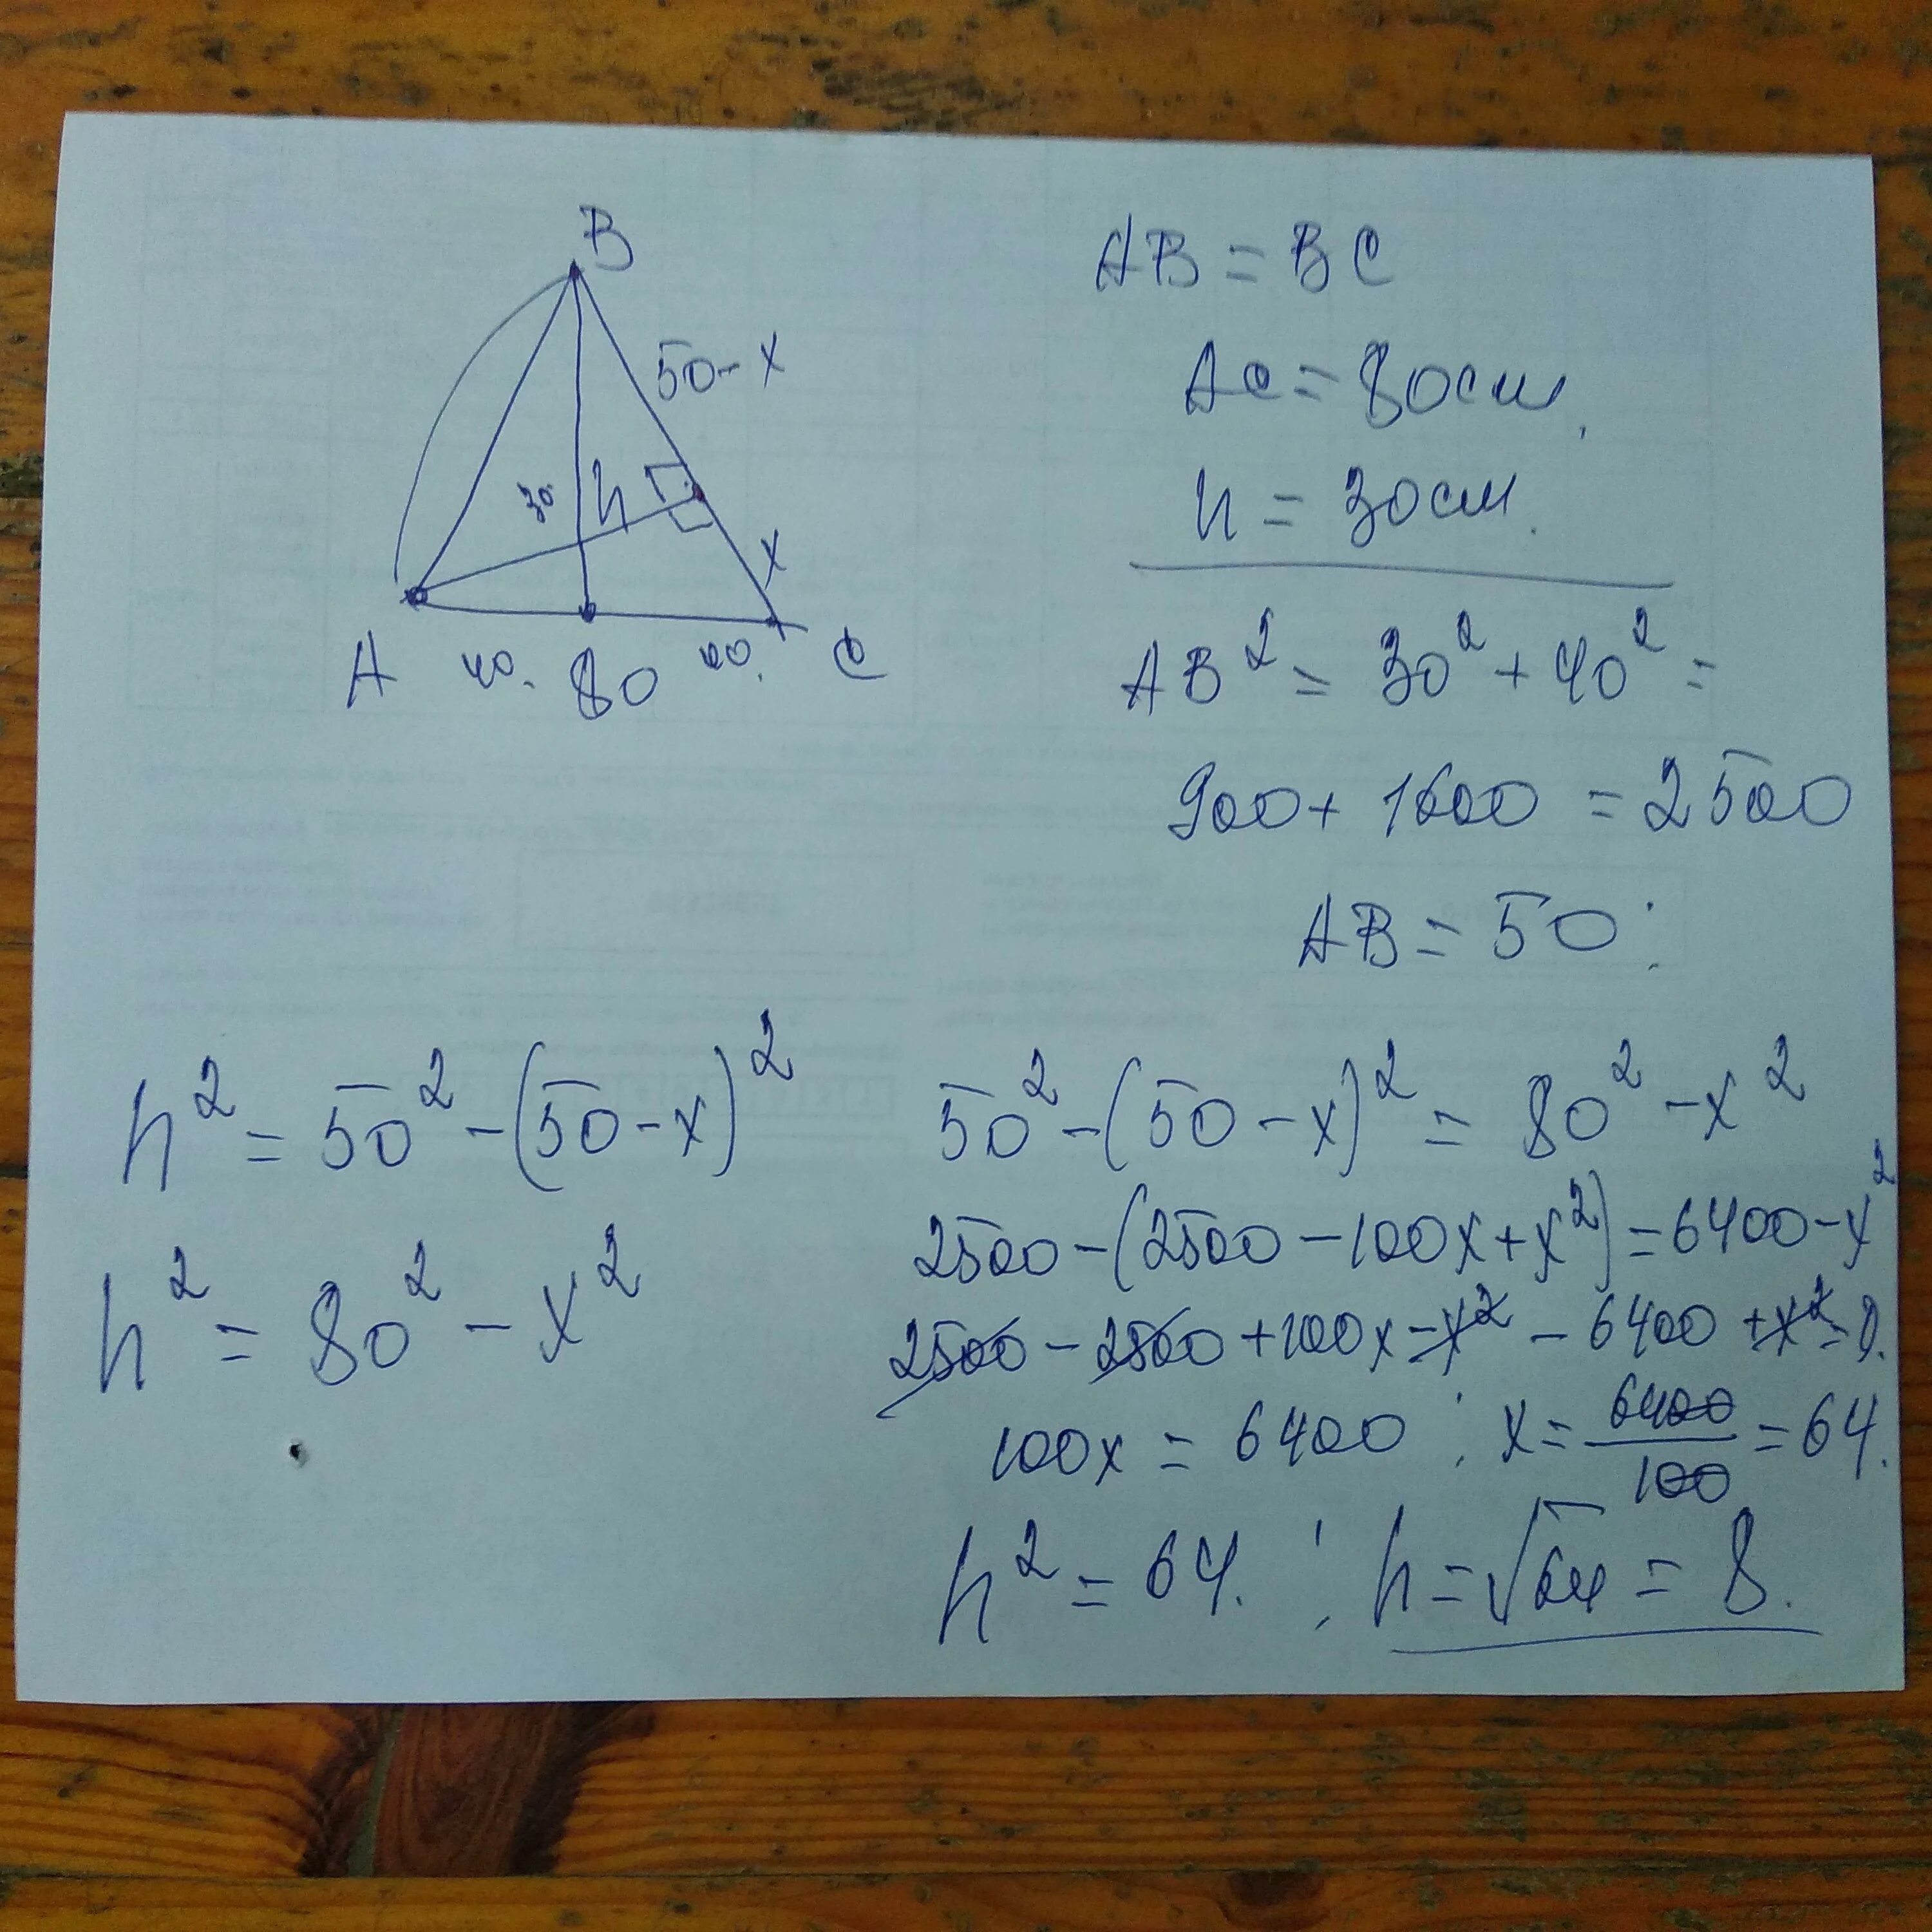 B
50-x
30
h
x
A 40. 80 40. C
AB = BC
AC = 80см,
h = 30см.
AB² = 30² + 40² =
900 + 1600 = 2500
AB = 50;
h² = 50² - (50 - x)²
h² = 80² - x²
50² - (50 - x)² = 80² - x²
2500 - (2500 - 100x + x²) = 6400 - x²
2500 - 2500 + 100x - x² - 6400 + x² = 0.
100x = 6400 ; x = 6400/100 = 64.
h² = 64. ; h = √64 = 8.